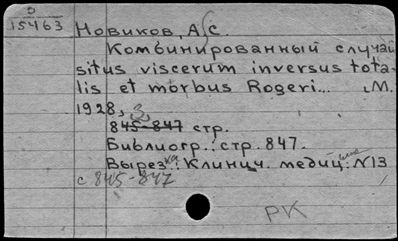 О
15463
Новиков, А.С.
Комбинированный случай
situs viscerum inversus tota-
lis et morbus Rogeri... М.
1928,
845-847 стр.
Библиогр.: стр. 847.
Вырезка: Клинич. медицине. N13
с 845-847
РК